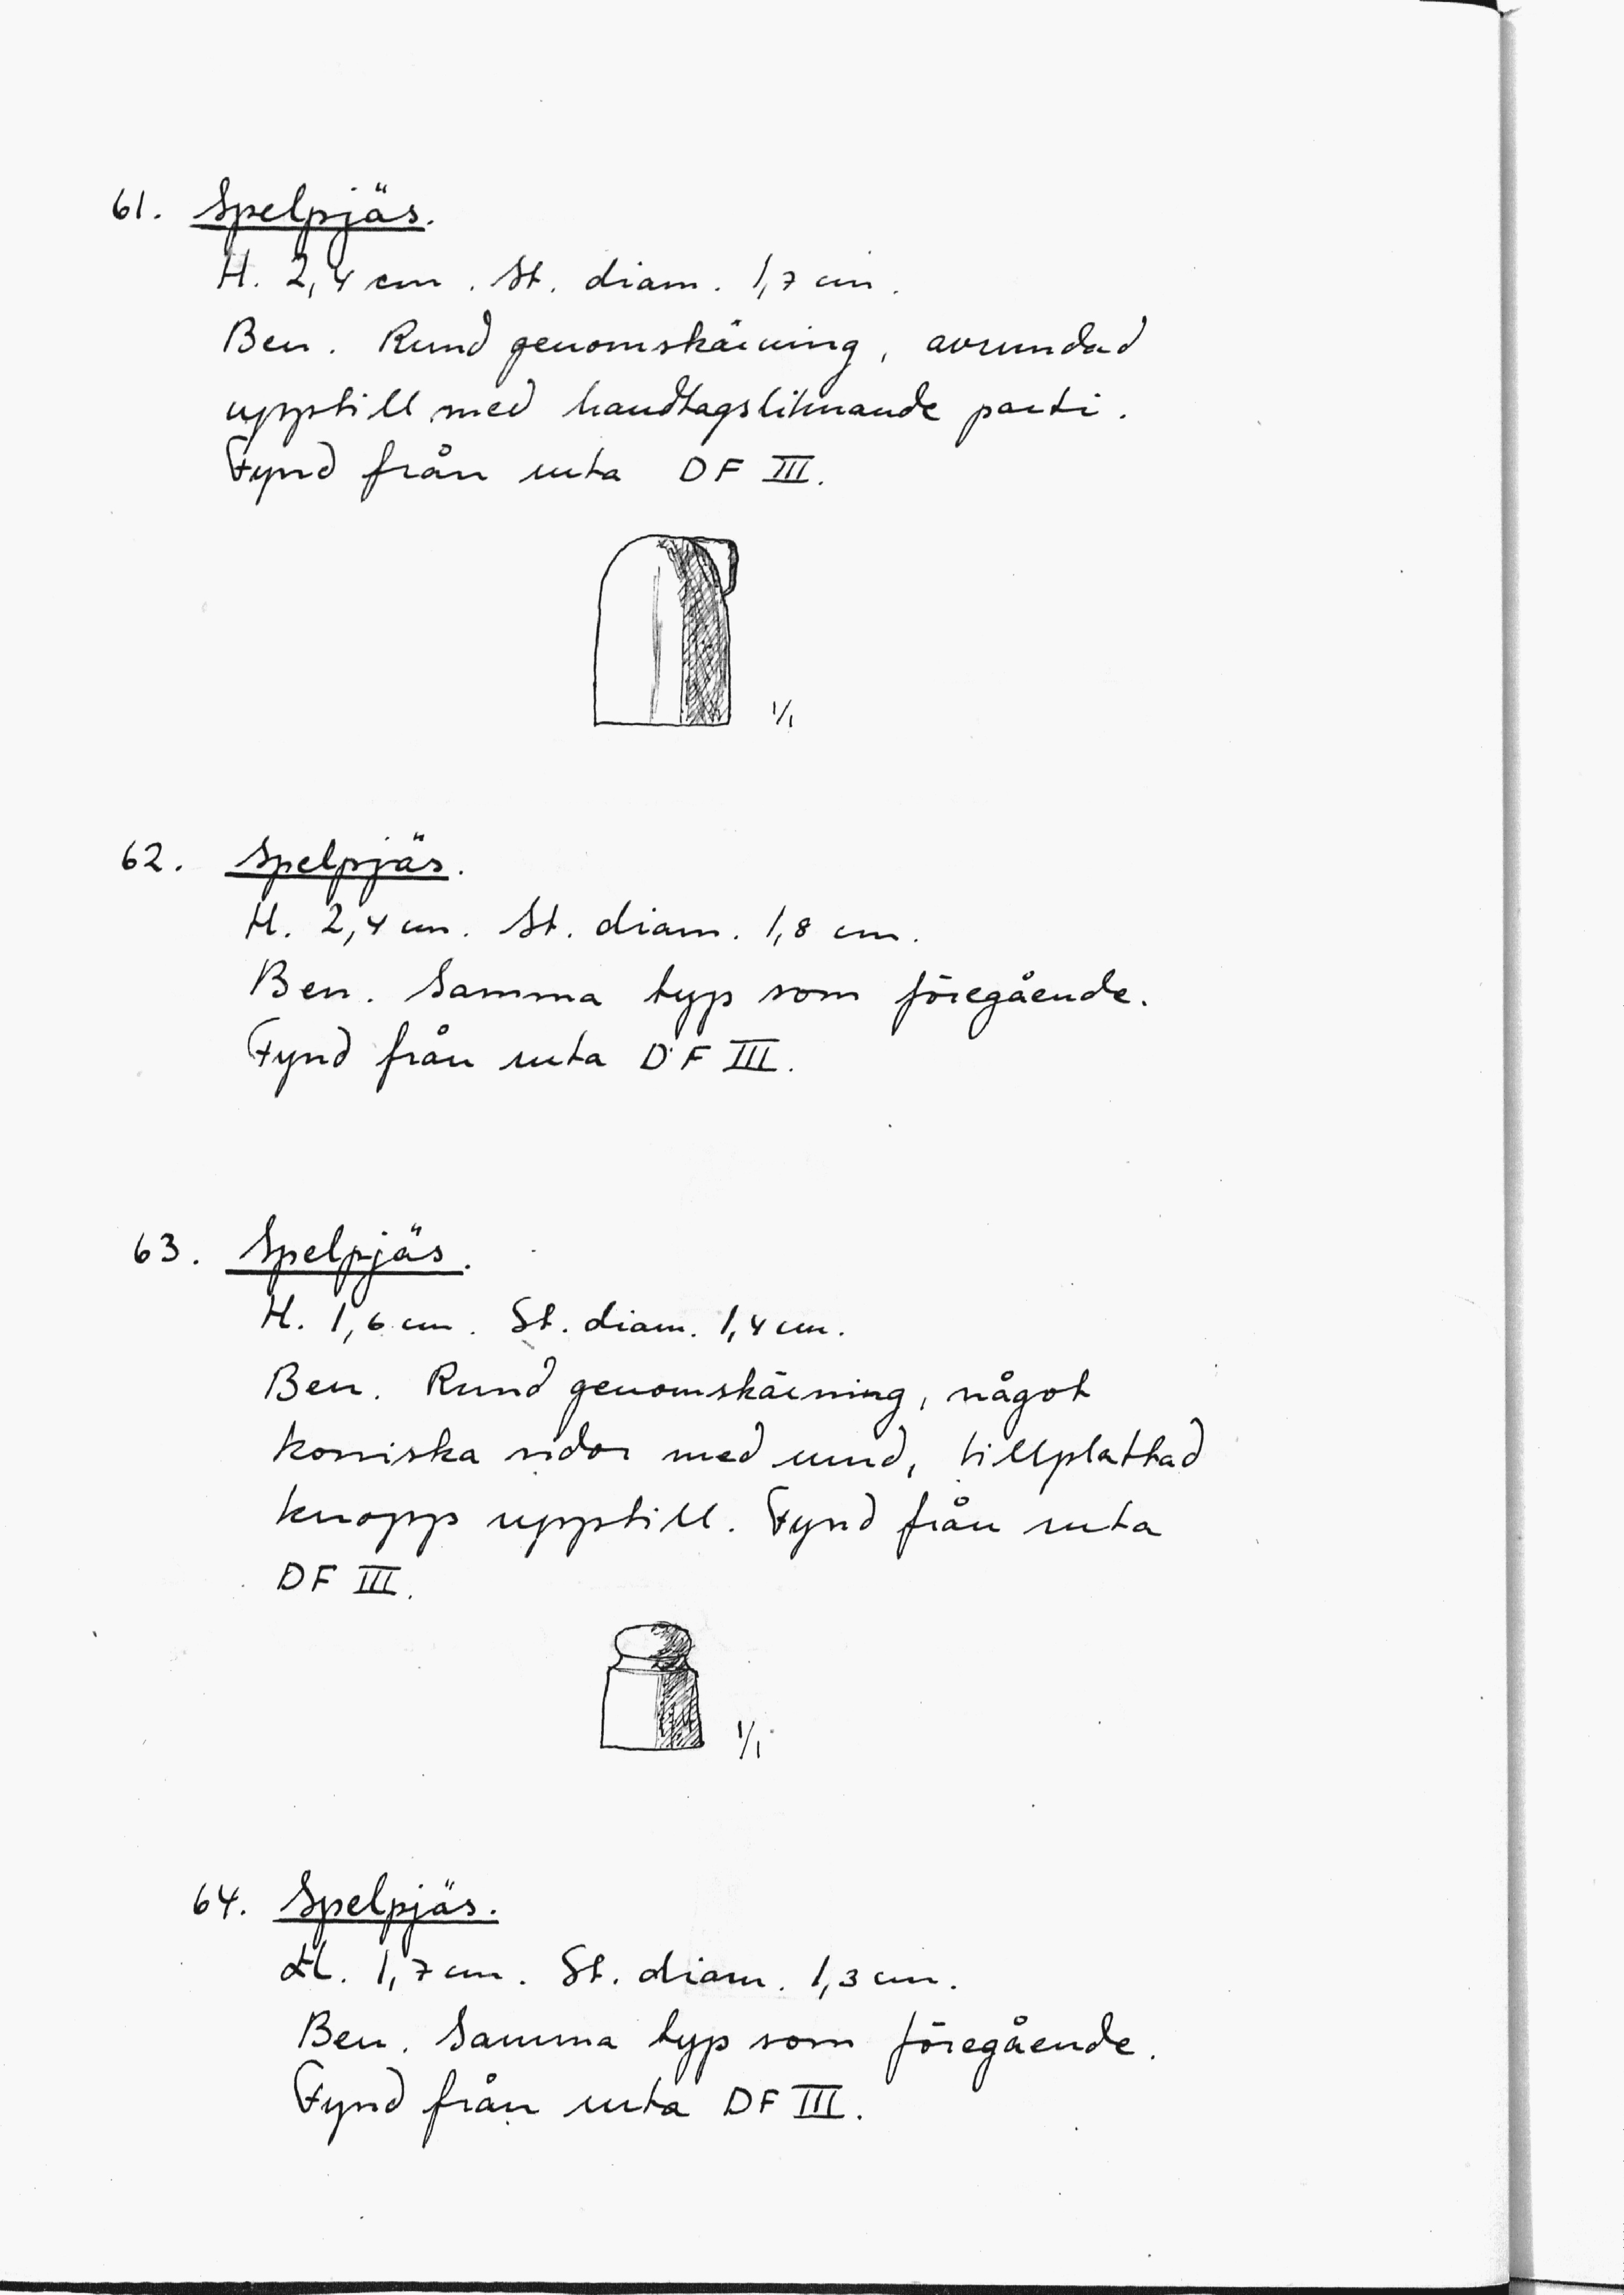 61. Spelpjäs.
H. 2,4 cm. St. diam. 1,7 cm.
Ben. Rund genomskärning, avrundad
upptill med handtagsliknande parti.
Fynd från ruta DF III.
1/1
62. Spelpjäs.
H. 2,4 cm. St. diam. 1,8 cm.
Ben. Samma typ som föregående.
Fynd från ruta DF III.
63. Spelpjäs.
H. 1,6 cm. St. diam. 1,4 cm.
Ben. Rund genomskärning, något
koniska sidor med rund, tillplattad
knopp upptill. Fynd från ruta
DF III.
1/1
64. Spelpjäs.
H. 1,7 cm. St. diam. 1,3 cm.
Ben. Samma typ som föregående.
Fynd från ruta DF III.